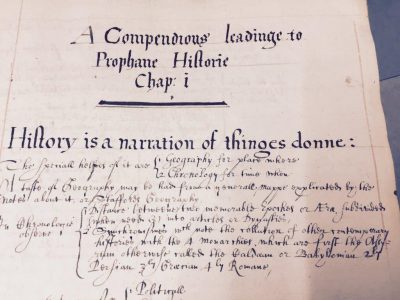 A Compendious leadinge to
Prophane Historie
Chap: 1
History is a narration of thinges donne:
The speciall helpes of it are { 1. Geography for place where
2 Chronology for time when
A tast of Geography may be had from a generall mappe explicated by the
notes about it, or Stafforts Geography
In Chronologie
observe 1.
Distance betweene the memorable epoches or Æra, subdivided
when need is into articles or
2 Synchronismes with note the collation of other contemporary
histories with the 4 monarchies which are first the Assy-
rian otherwise called the Caldean or Babylonian 2ly
Persian 3ly Grecian 4ly Romane.
1 Politicall